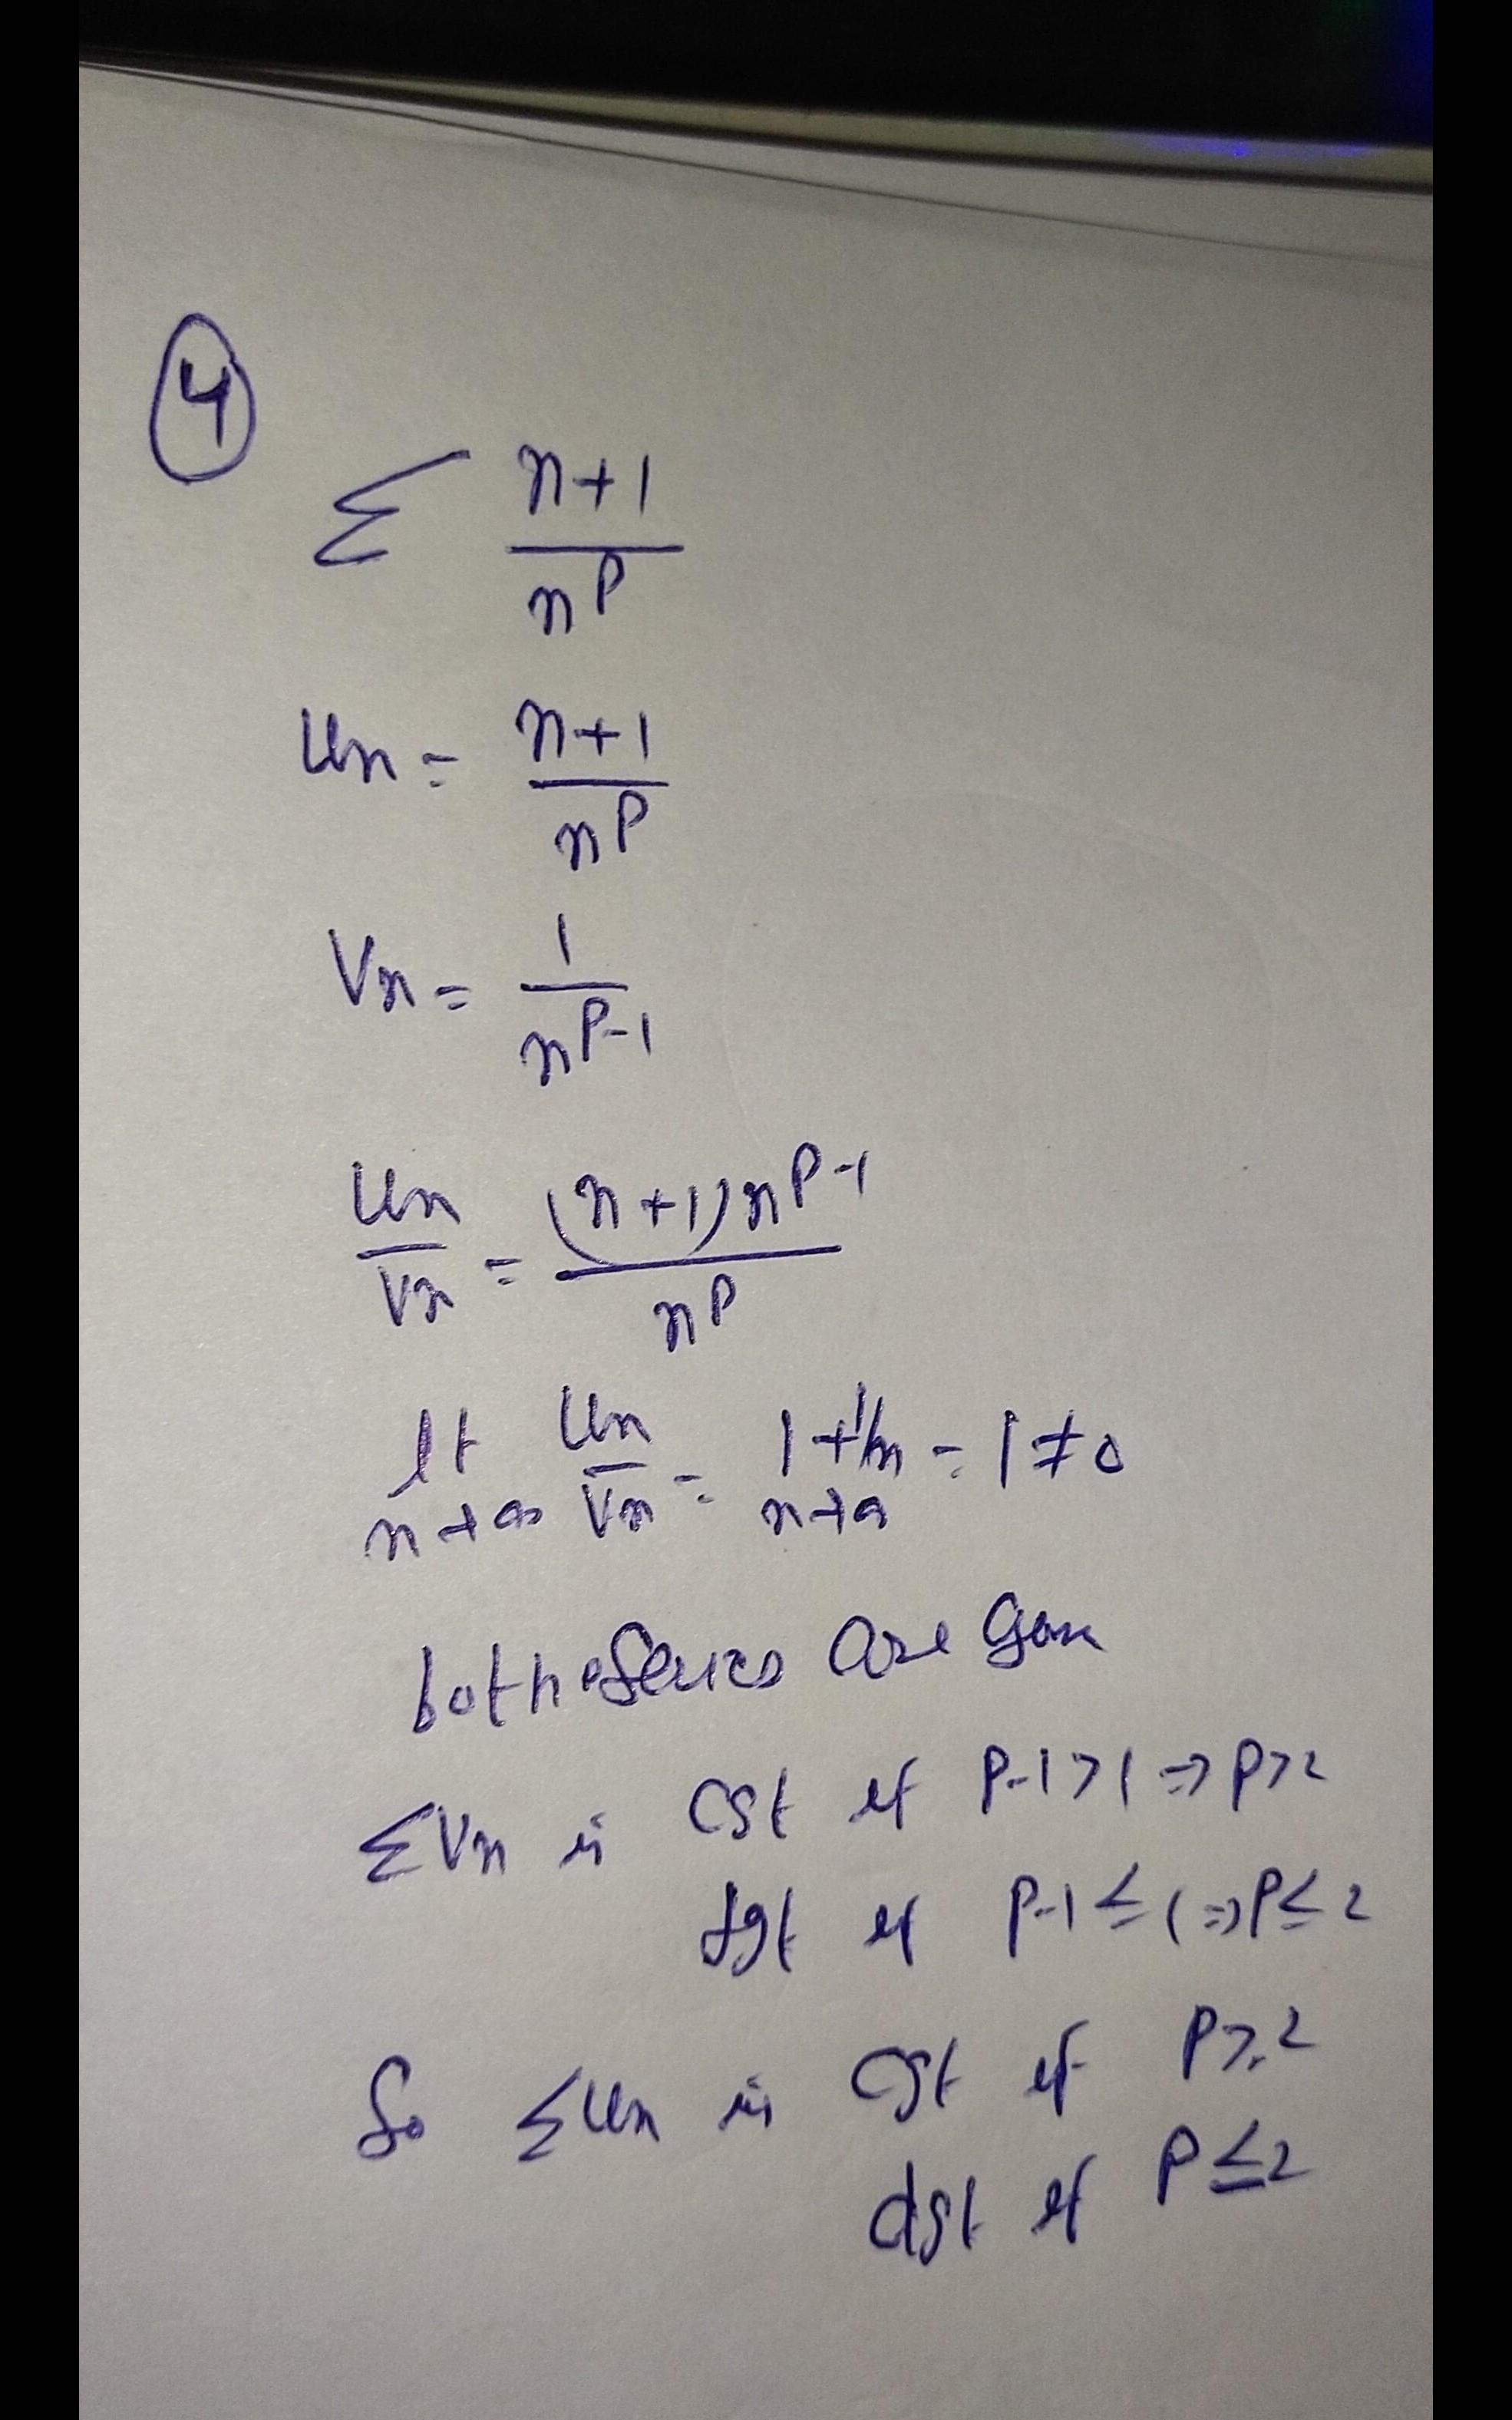 4
Σ (n+1)/n^p
Un = (n+1)/n^p
Vn = 1/n^(p-1)
Un/Vn = (n+1)n^(p-1)/n^p
lt n→∞ Un/Vn = 1+1/n n→∞ = 1 ≠ 0
both series are
ΣVn is cgt if p-1>1 ⇒ p>2
dgt if p-1≤1 ⇒ p≤2
So ΣUn is cgt if p>2
dgt if p≤2